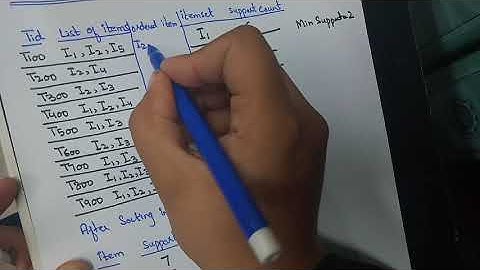 Tid List of Items ordered item Itemset support count
Min Support=2
T100 I1, I2, I5 I2 I1
T200 I2, I4
T300 I2, I3
T400 I1, I2, I4
T500 I1, I3
T600 I2, I3
T700 I1, I3
T800 I1, I2, I3
T900 I1, I2,
After Sorting
Item Support
7